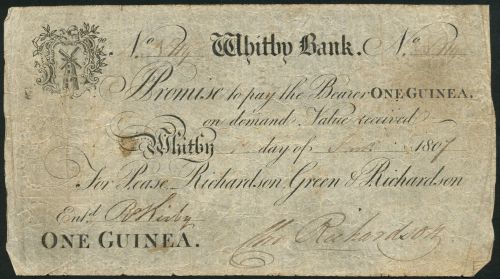 No Whitby Bank. No
I Promise to pay the Bearer ONE GUINEA.
on demand Value received
Whitby day of 1807
For Pease Richardson Green & Richardson
Entd. Rt Kirby
ONE GUINEA. Richardson